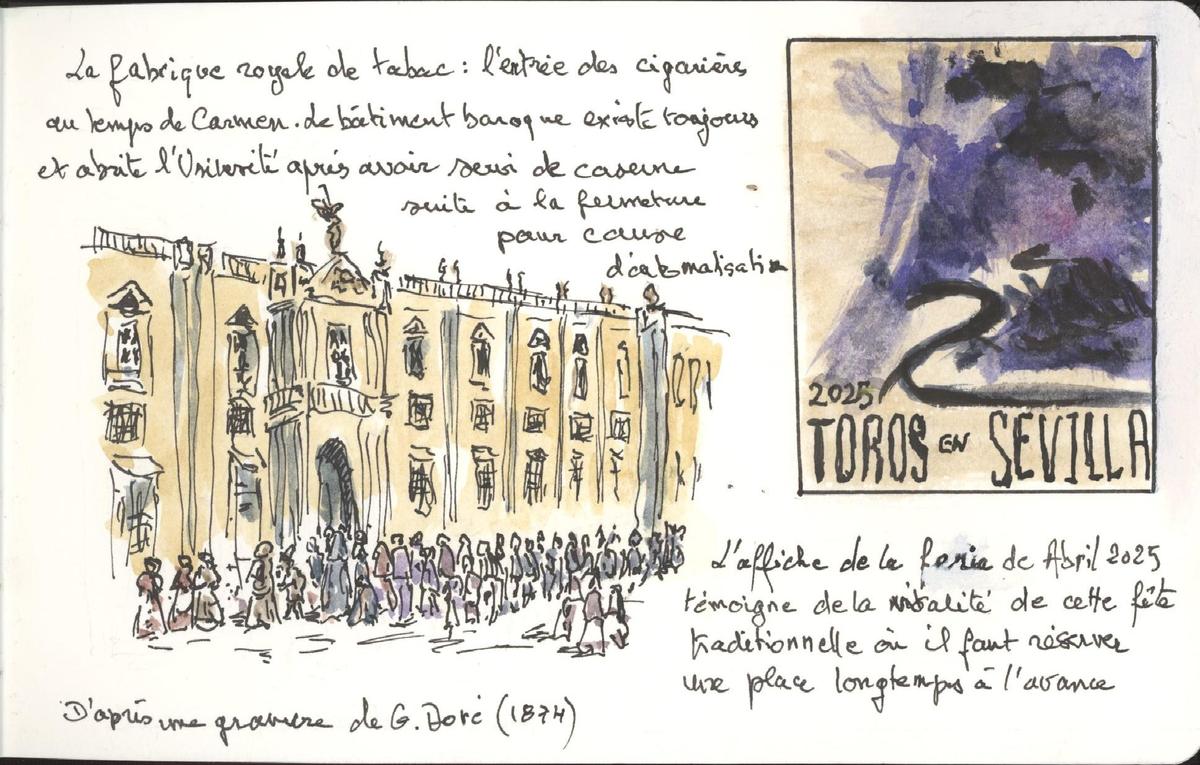 La fabrique royale de tabac : l'entrée des cigarières
au temps de Carmen. Le bâtiment baroque existe toujours
et abrite l'Université après avoir servi de caserne
suite à la fermeture
pour cause
d'automatisation
2025
TOROS EN SEVILLA
L'affiche de la feria de Abril 2025
témoigne de la de cette fête
traditionnelle où il faut réserver
une place longtemps à l'avance
D'après une gravure de G. Doré (1874)